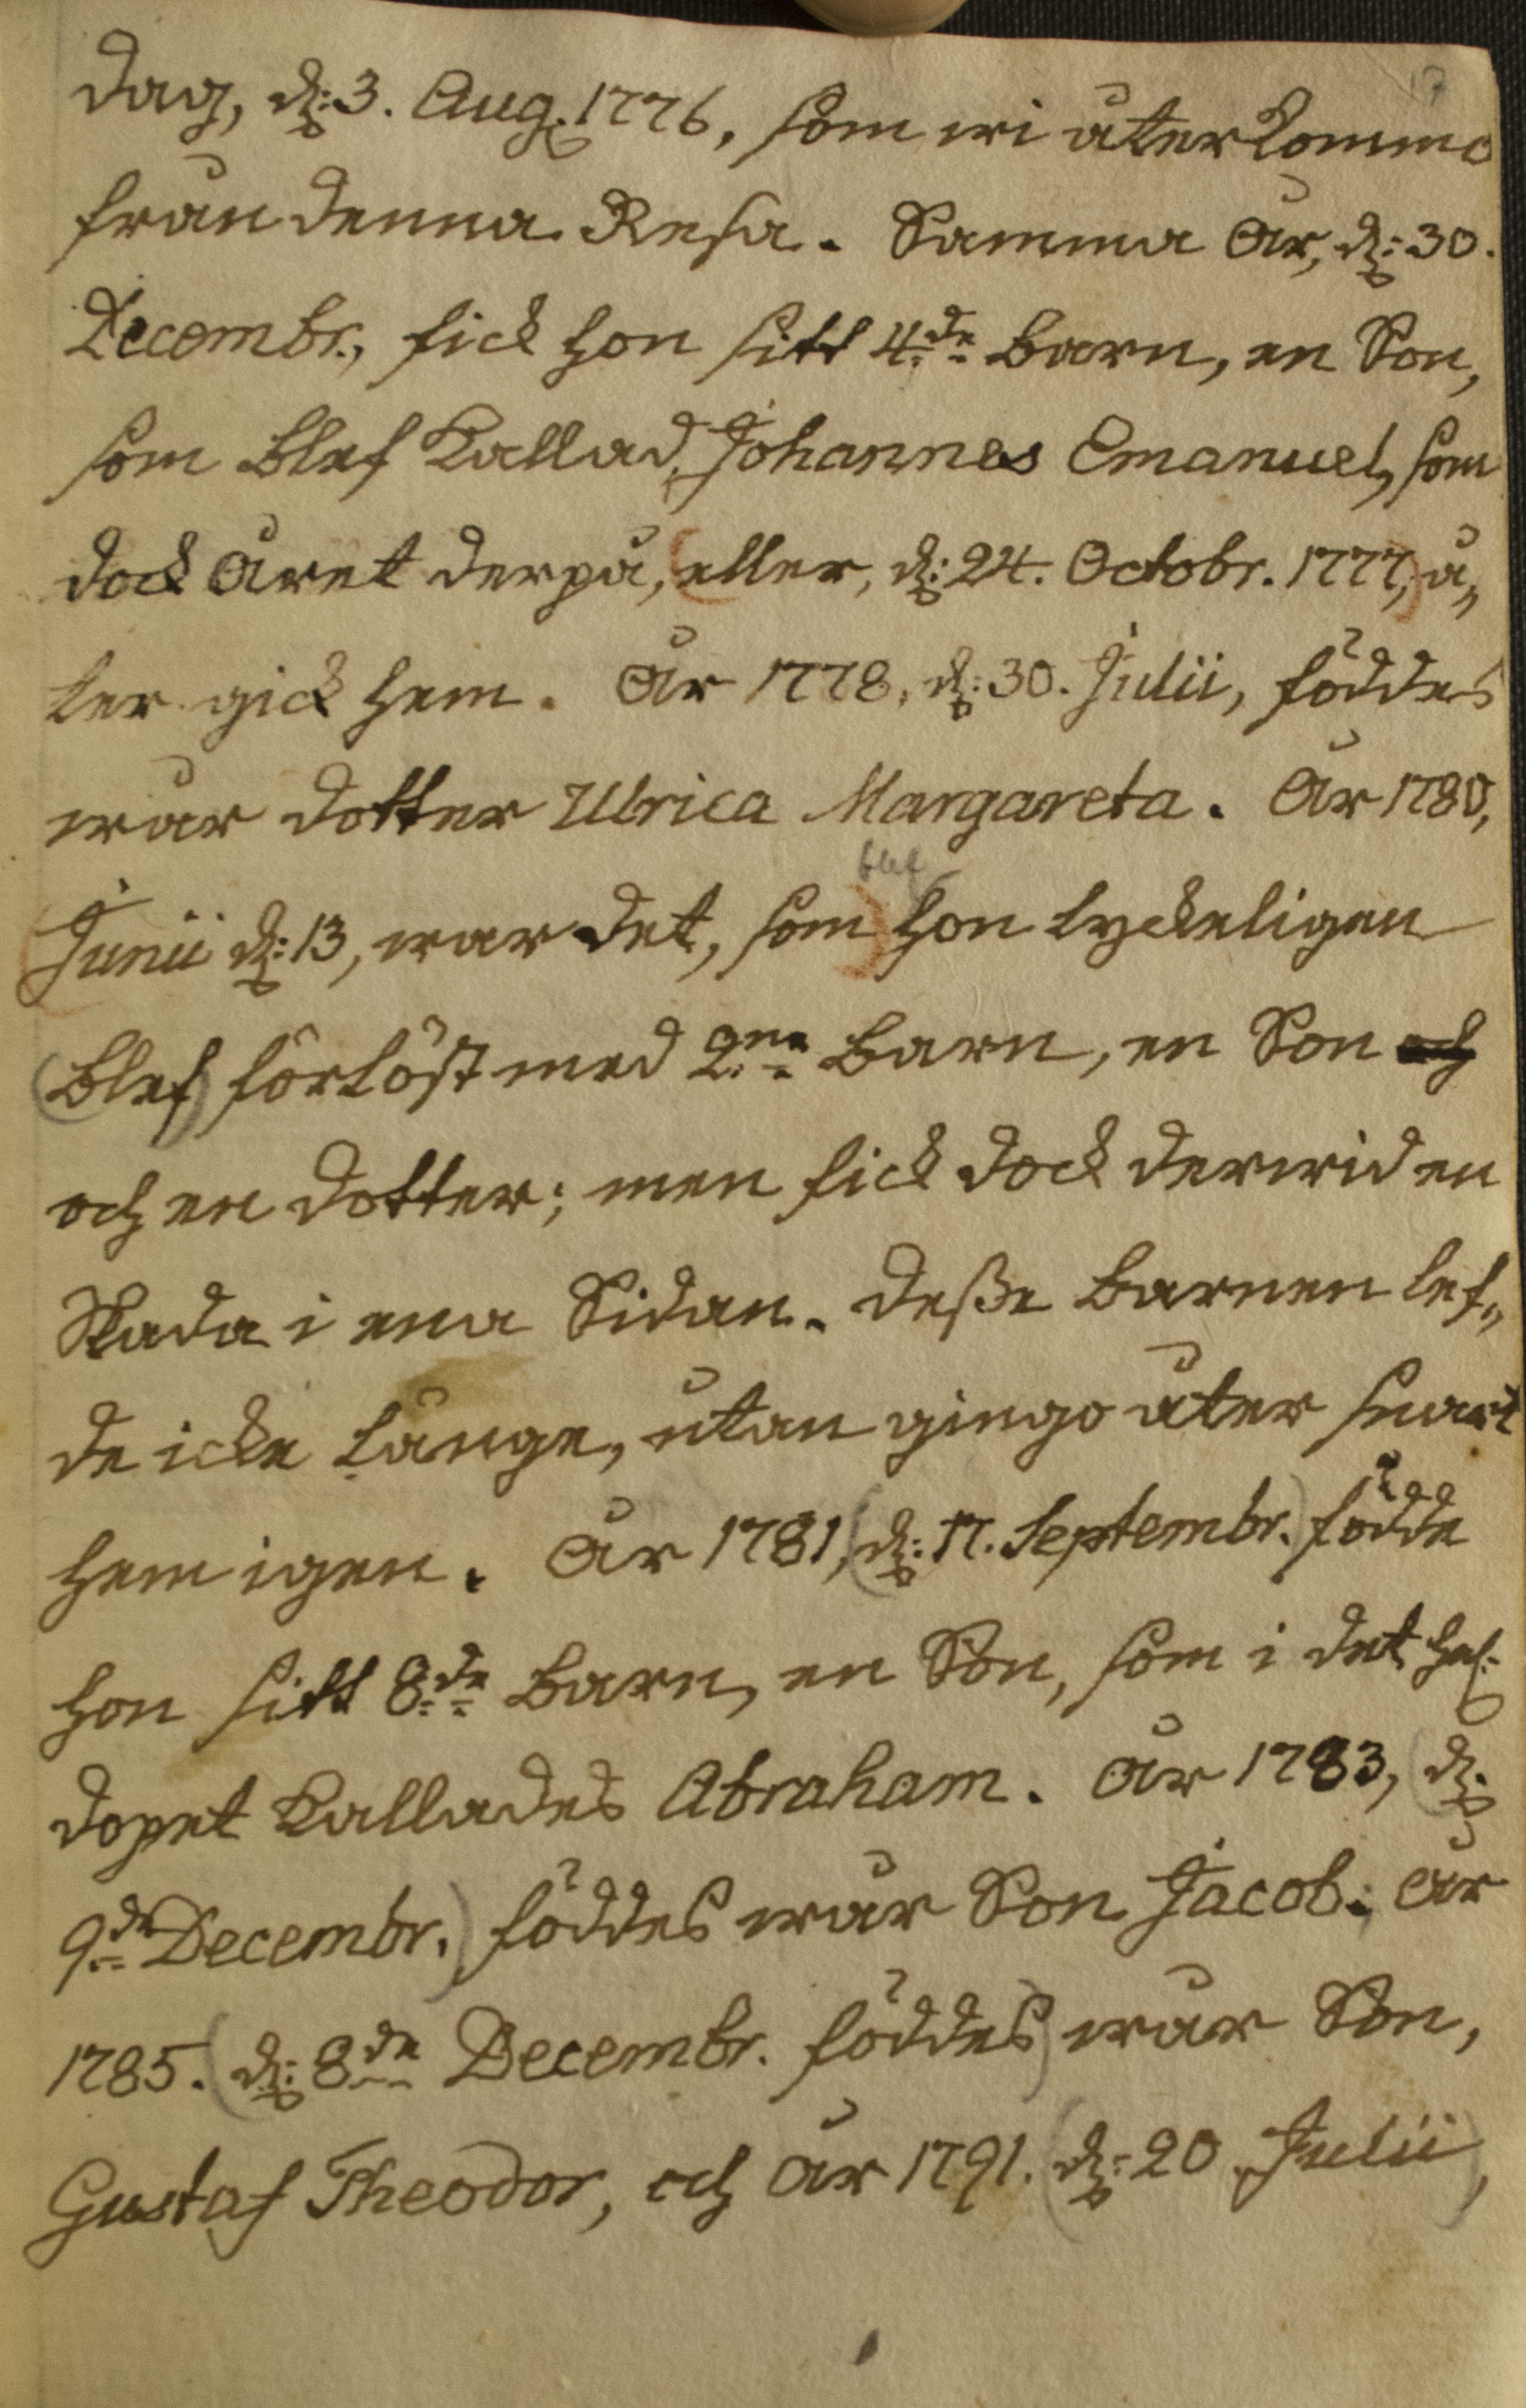 17
dag, d: 3. Aug. 1776, som wi återkommo
från denna Resa. Samma År, d: 30.
Decembr., fick hon sitt 4.de Barn, en Son,
som blef kallad, Johannes Emanuel, som
dock Året derpå, (eller, d: 24. Octobr. 1777,) å„
ter gick hem. År 1778, d: 30. Julii, föddes
wår dotter Ulrica Margareta. År 1780,
blef
(Junii d: 13, war det, som) hon lyckeligen
(blef) förlöst med 2.ne Barn, en Son och
och en dotter; men fick dock derwid en
Skada i ena Sidan. Deße Barnen lef„
de icke länge, utan gingo åter snart
hem igen. År 1781, (d: 17. Septembr.) födde
hon sitt 8.de Barn, en Son, som i det hel.
dopet kallades Abraham. År 1783, (d:
9.de Decembr.) föddes wår Son Jacob. År
1785. (d: 8.de Decembr. föddes) wår Son,
Gustaf Theodor, och År 1791. (d: 20 Julii),